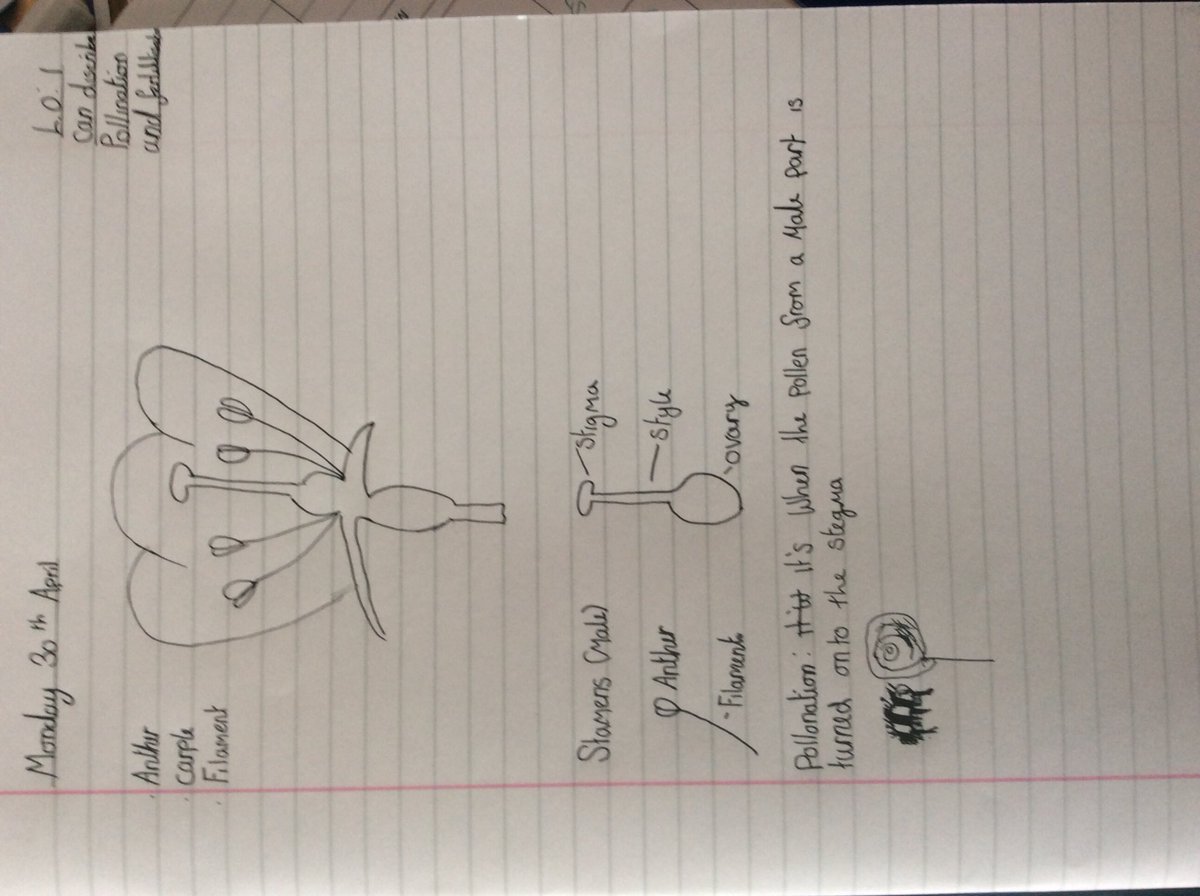 Monday 30th April
L.O: I
Can describe
Pollination
and
· Anther
· Carple
· Filament
Stamens (Male)
Anther
Filament
Stigma
Style
ovary
Pollonation: It's When the pollen from a Male part is
turned onto the stegma